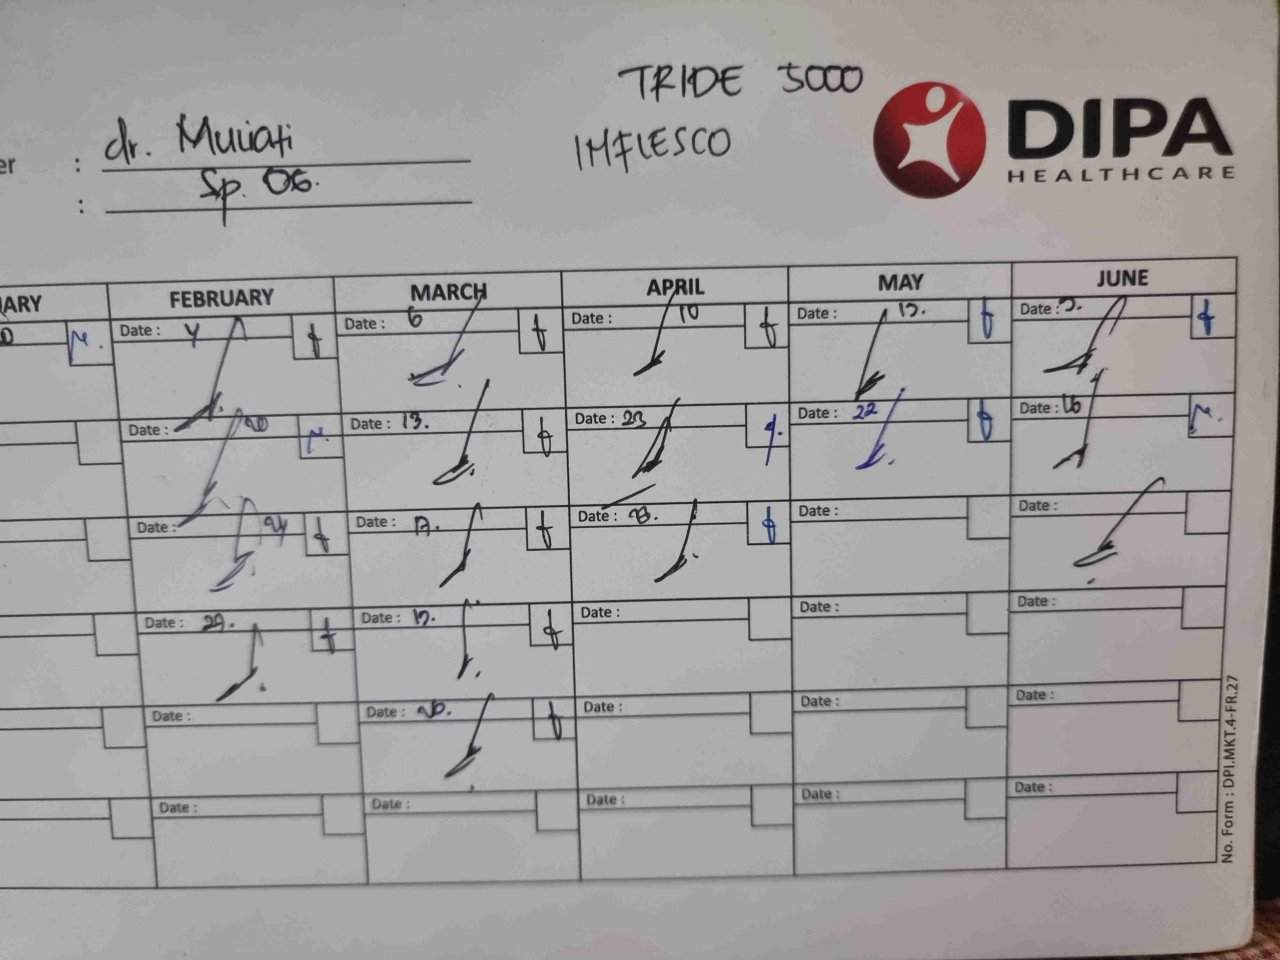 TRIDE 5000
IMFLESCO
DIPA
HEALTHCARE
er : dr. Muliati
: Sp. OG.
ARY FEBRUARY MARCH APRIL MAY JUNE
Date : 4 Date : 6 Date : 10 Date : 13. Date : 5.
Date : 20 Date : 13. Date : 23 Date : 22 Date : 16
Date : 24 Date : 17. Date : 28. Date : Date :
Date : 29. Date : 19. Date : Date : Date :
Date : Date : 26. Date : Date : Date :
Date : Date : Date : Date : Date :
No. Form : DPI.MKT.4-FR.27